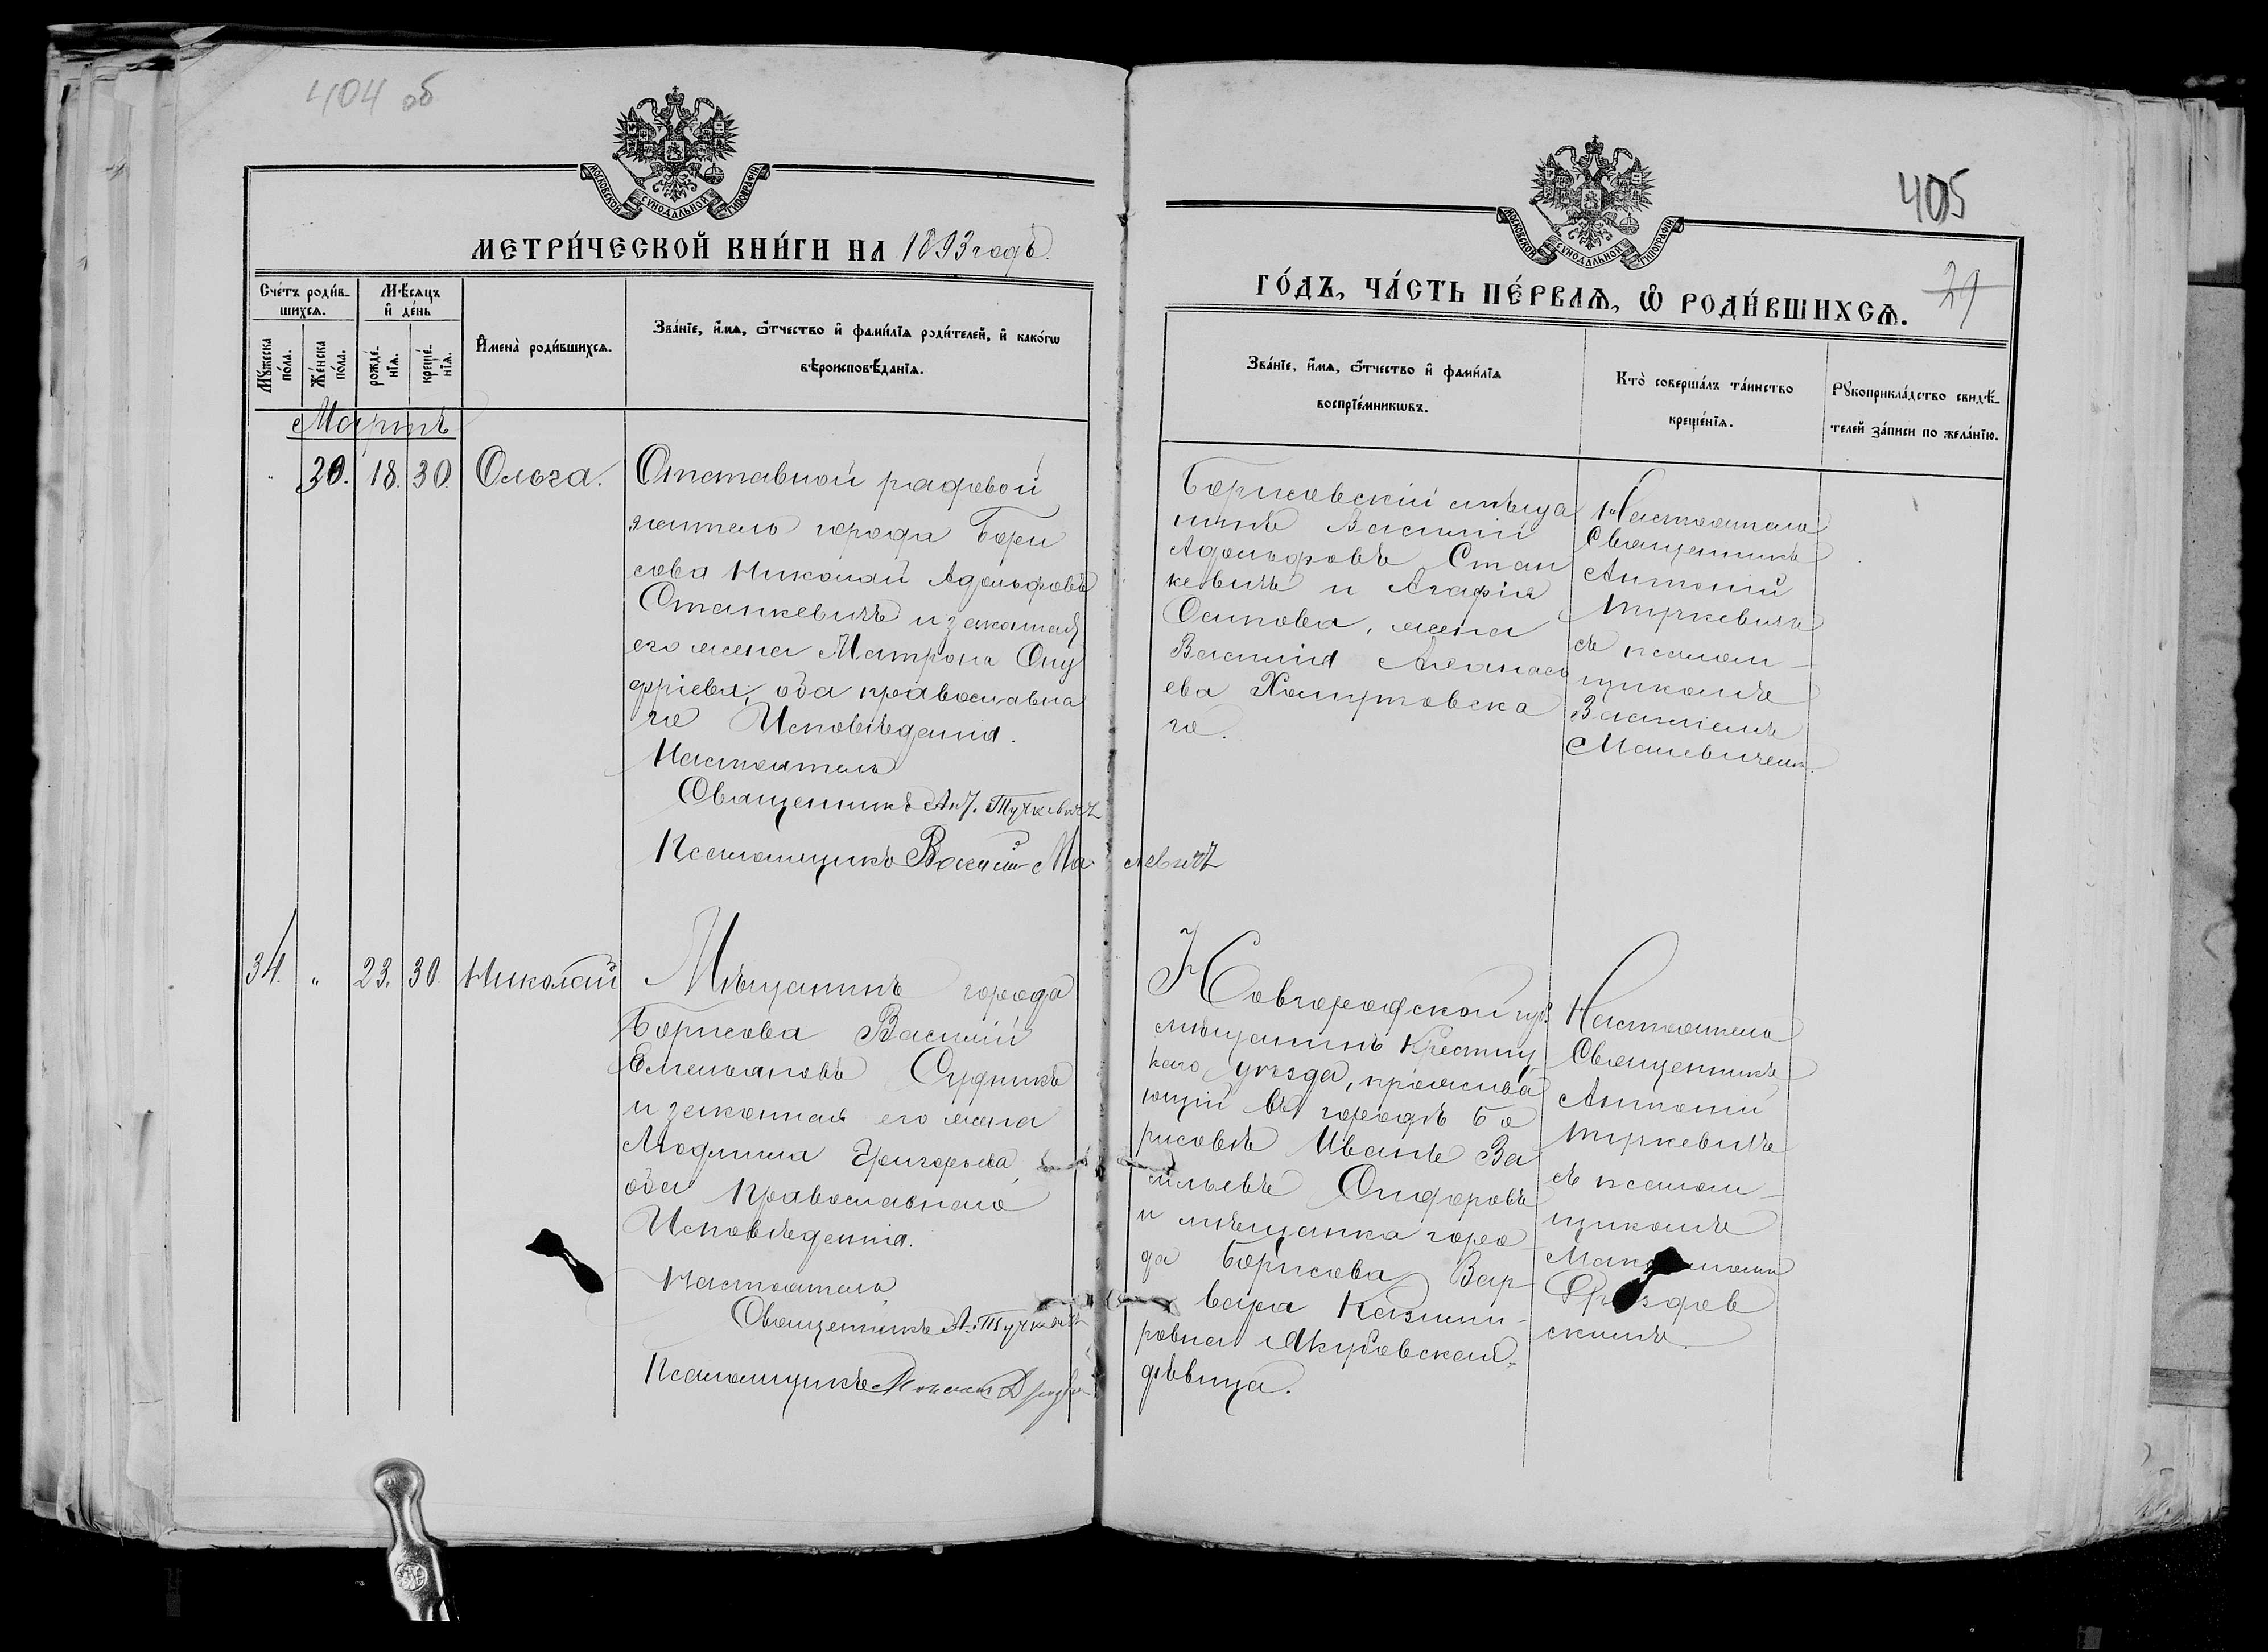 404 об
МОСКОВСКОЙ СѴНОДАЛЬНОЙ ТИПОГРАФІИ
МЕТРИ́ЧЕСКОЙ КНИ́ГИ НА 1893 годъ.
Сче́тъ роди́в-
шихсѧ.
Мѣ́сѧцъ
и҆ де́нь
Мꙋ́жеска
по́ла.
Же́нска
по́ла.
рожде́-
нїѧ.
креще́-
нїѧ.
И҆мена̀ роди́вшихсѧ.
Зва́нїе, и҆́мѧ, ѻ҆́тчество и҆ фами́лїѧ роди́телей, и҆ како́гѡ
вѣроисповѣ́данїѧ.
Мартъ
30. 18. 30. Ольга.
Отставной рядовой
житель города Бори
сова Николай Адольфовъ
Станкевичъ и законная
его жена Матрона Ону
фріева, оба православна
го Исповѣданія.
Настоятель
Священникъ Ант. Тучкевичъ
Псаломщикъ Василій Ма левичъ
34. " 23. 30. Николай
Мѣщанинъ города
Борисова Василій
Емельяновъ Судникъ
и законная его жена
Людмила Григорьева,
оба Православнаго
Исповѣданія.
Настоятель
Священникъ А. Тучкевичъ
Псаломщикъ
405
29
МОСКОВСКОЙ СѴНОДАЛЬНОЙ ТИПОГРАФІИ
ГО́ДЪ, ЧА́СТЬ ПЕ́РВАѦ, Ѡ҆ РОДИ́ВШИХСѦ.
Зва́нїе, и҆́мѧ, ѻ҆́тчество и҆ фами́лїѧ
воспрїе́мникѡвъ.
Кто̀ соверша́лъ та́инство
креще́нїѧ.
Рꙋкоприкла́дство свидѣ́-
телей за́писи по жела́нїю.
Борисовскій мѣща
нинъ Василій
Адольфовъ Стан
кевичъ и Агафія
Осипова, жена
Василія Аѳанась
ева Халутовска
го.
Настоятель
Священникъ
Антоній
Тучкевичъ
съ псалом-
щикомъ
Василіемъ
Малевичемъ.
Новгородской губ.
мѣщанинъ Крестец
каго уѣзда, прожива
ющій въ городѣ Бо
рисовѣ Иванъ Ва
сильевъ Сидоровъ
и мѣщанка горо
да Борисова Вар-
вара Казими-
ровна Якубовская-
дѣвица.
Настоятель
Священникъ
Антоній
Тучкевичъ
съ псалом-
щикомъ
скимъ.